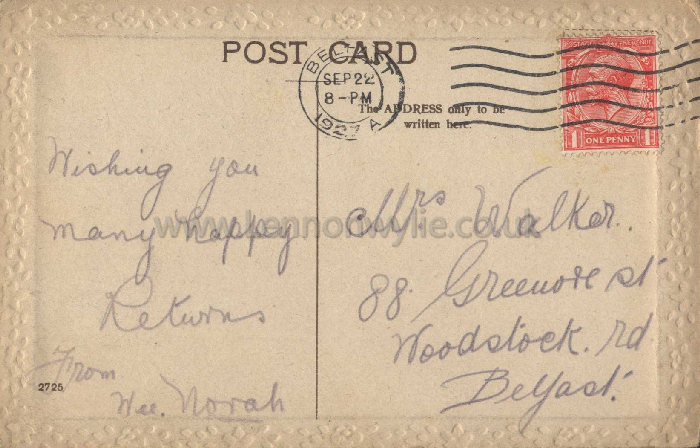 POST CARD
BELFAST
SEP 22
8 - PM
1927 A
The ADDRESS only to be
written here.
ONE PENNY
1 1
Wishing you
many happy
Returns
From
Wee. Norah
2725
Mrs Walker.
88 Greenore st
Woodstock. rd
Belfast.
www.kennonwylie.co.uk